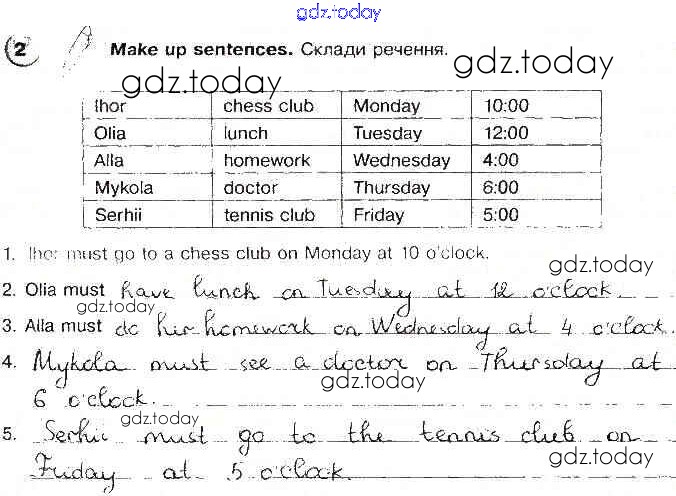 gdz.today
2 Make up sentences. Склади речення.
gdz.today gdz.today
Ihor chess club Monday 10:00
Olia lunch Tuesday 12:00
Alla homework Wednesday 4:00
Mykola doctor Thursday 6:00
Serhii tennis club Friday 5:00
1. Ihor must go to a chess club on Monday at 10 o'clock.
gdz.today
2. Olia must have lunch on Tuesday at 12 o'clock.
gdz.today
3. Alla must do her homework on Wednesday at 4 o'clock.
4. Mykola must see a doctor on Thursday at
gdz.today
6 o'clock.
gdz.today
5. Serhii must go to the tennis club on
gdz.today
Friday at 5 o'clock.